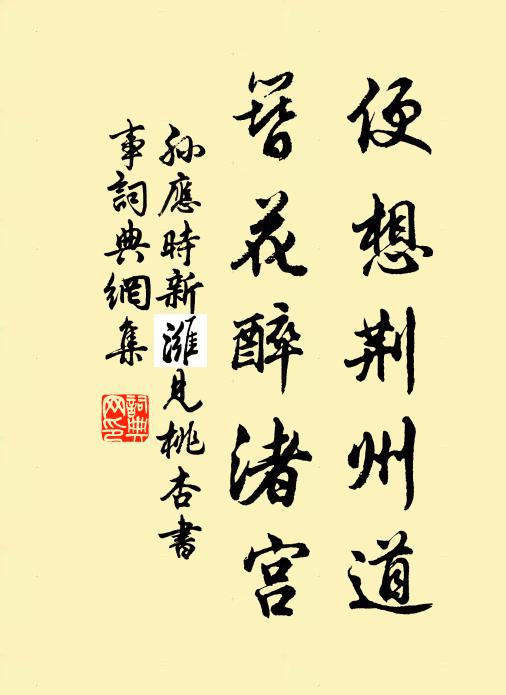 便想荆州道
簪花醉渚宫
孙應時新灘見桃杏書
事詞典網集
詞典網印